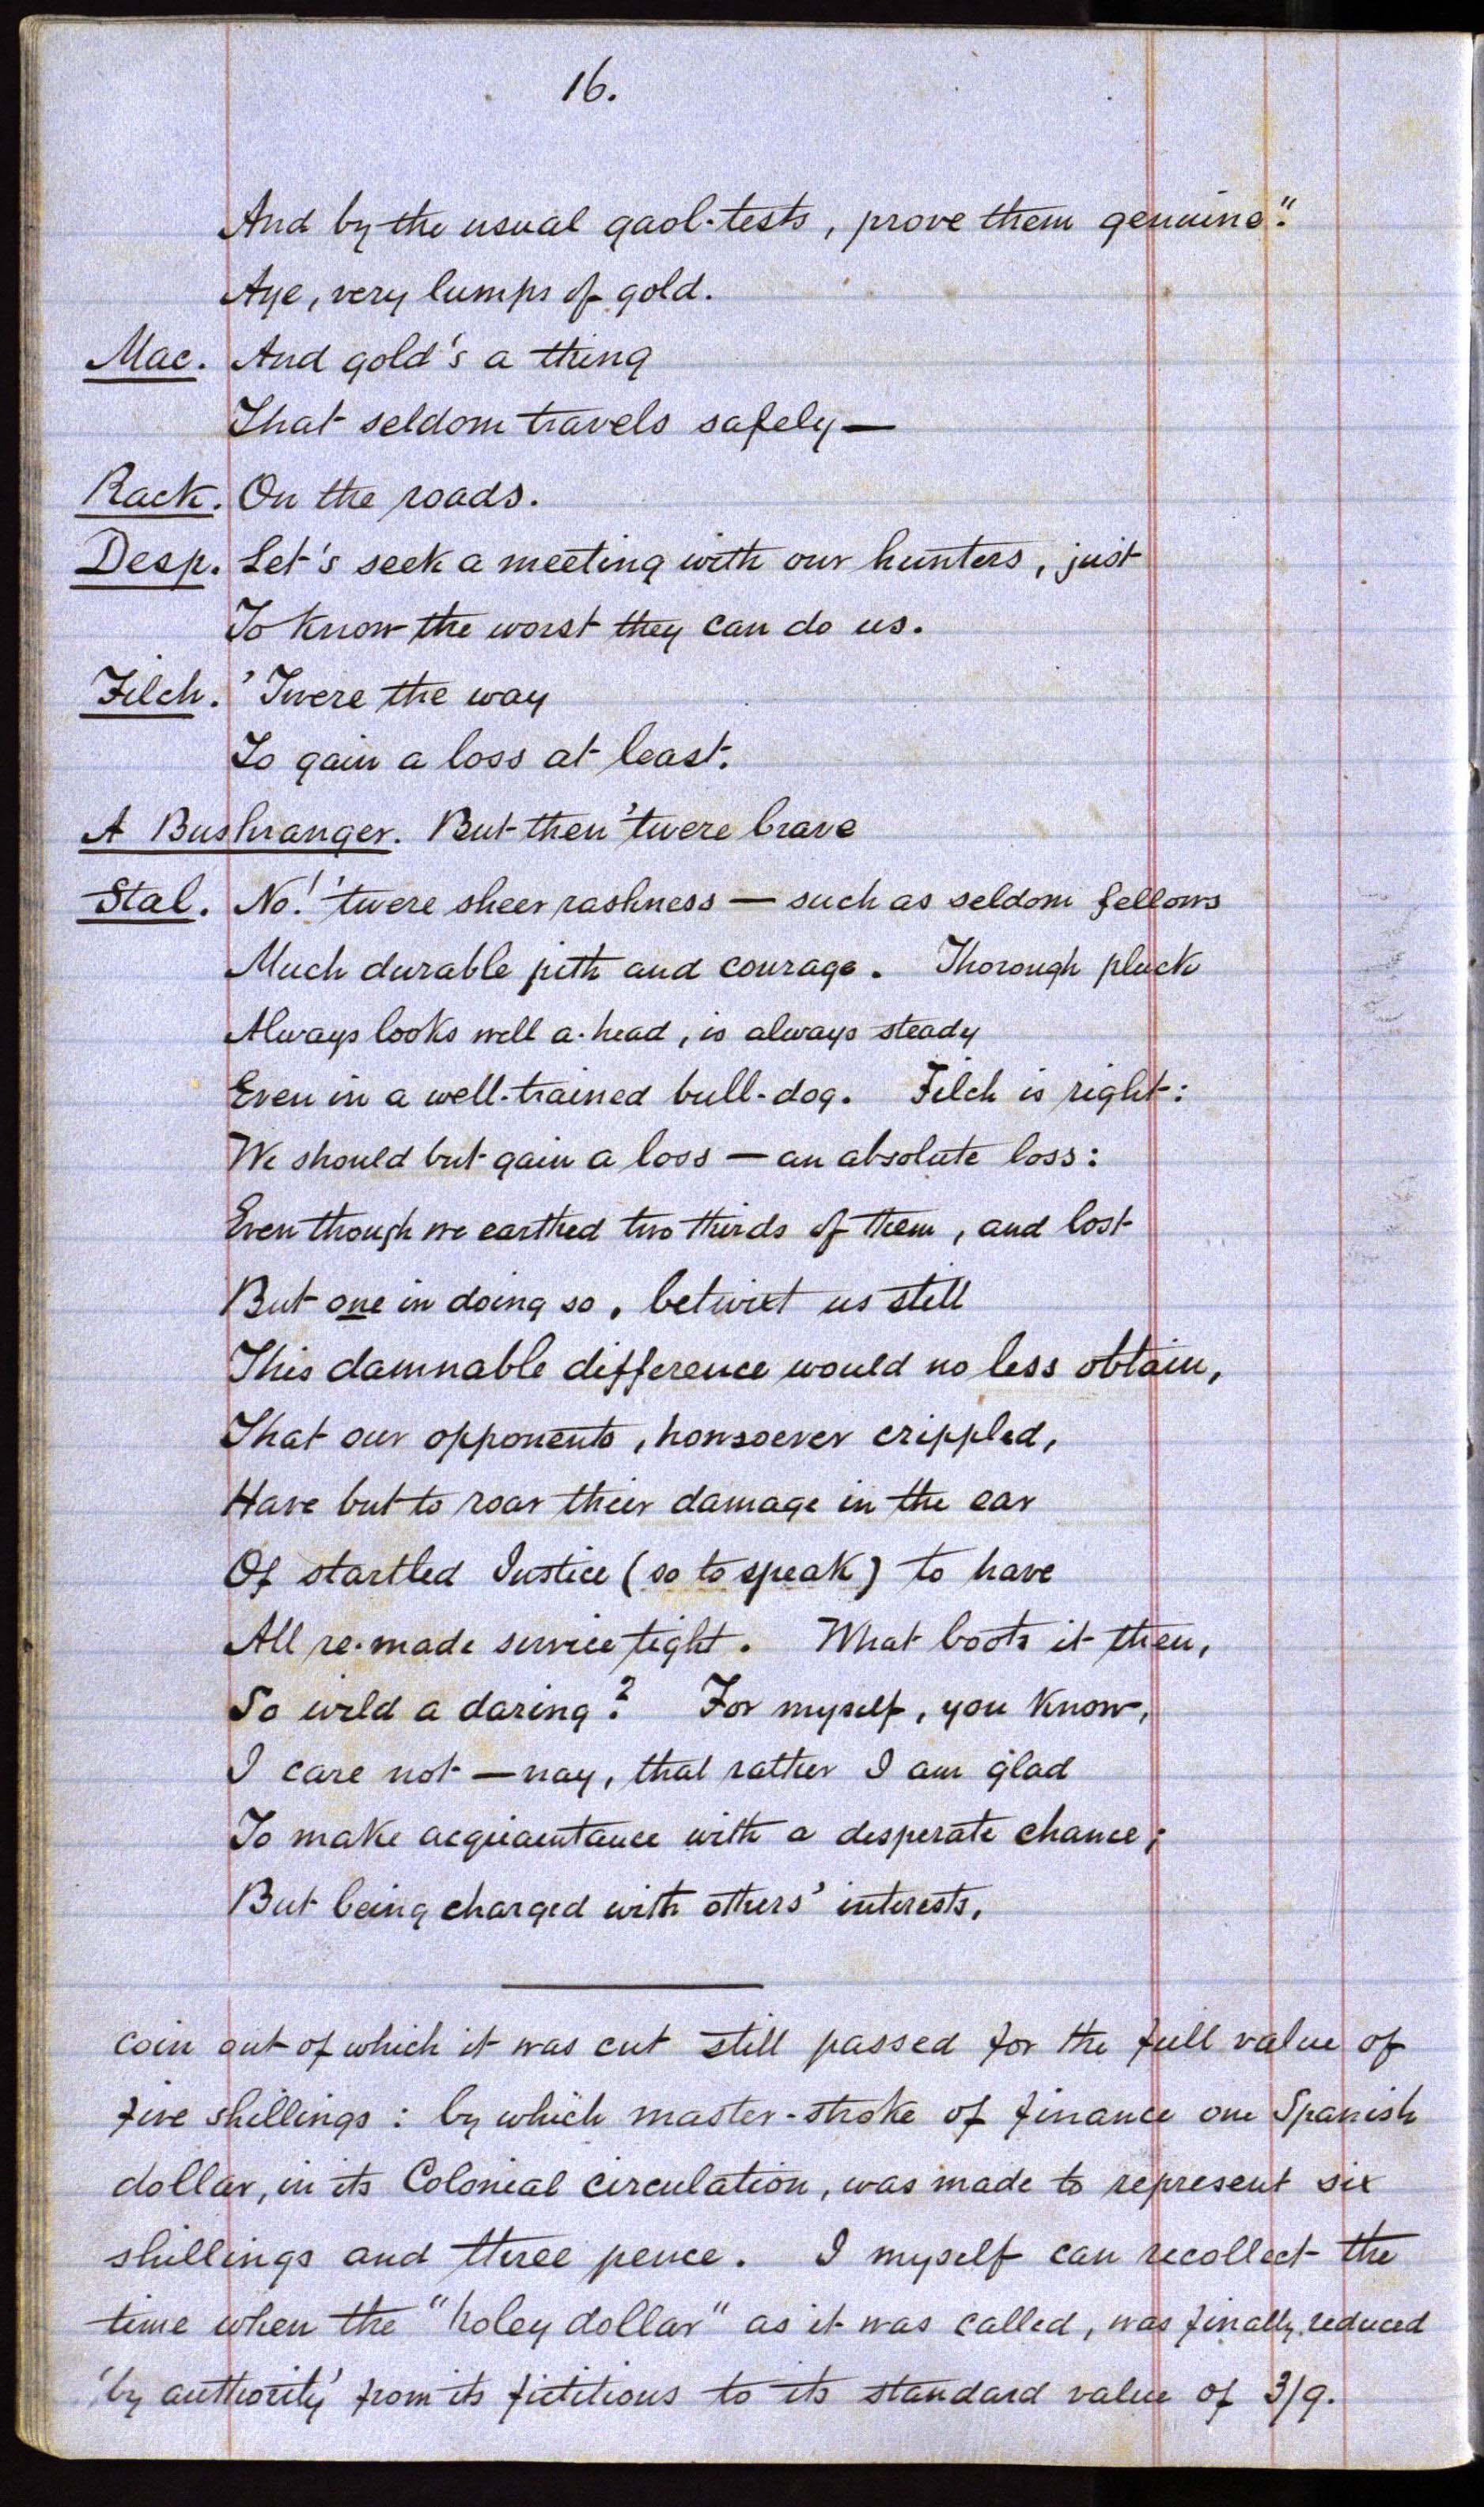 16.
And by the usual gaol-tests, prove them genuine."
Aye, very lumps of gold.
Mac. And gold's a thing
That seldom travels safely —
Rack. On the roads.
Desp. Let's seek a meeting with our hunters, just
To know the worst they can do us.
Filch. 'Twere the way
To gain a loss at least.
A Bushranger. But then 'twere brave
Stal. No! 'twere sheer rashness — such as seldom fellows
Much durable pith and courage. Thorough pluck
Always looks well a-head, is always steady
Even in a well-trained bull-dog. Filch is right:
We should but gain a loss — an absolute loss:
Even though we earthed two thirds of them, and lost
But one in doing so, betwixt us still
This damnable difference would no less obtain,
That our opponents, howsoever crippled,
Have but to roar their damage in the ear
Of startled Justice (so to speak) to have
All re-made service tight. What boots it then,
So wild a daring? For myself, you know,
I care not — nay, that rather I am glad
To make acquaintance with a desperate chance;
But being charged with others' interests,
coin out of which it was cut still passed for the full value of
five shillings: by which master-stroke of finance one Spanish
dollar, in its Colonial circulation, was made to represent six
shillings and three pence. I myself can recollect the
time when the "holey dollar" as it was called, was finally reduced
'by authority' from its fictitious to its standard value of 3/9.